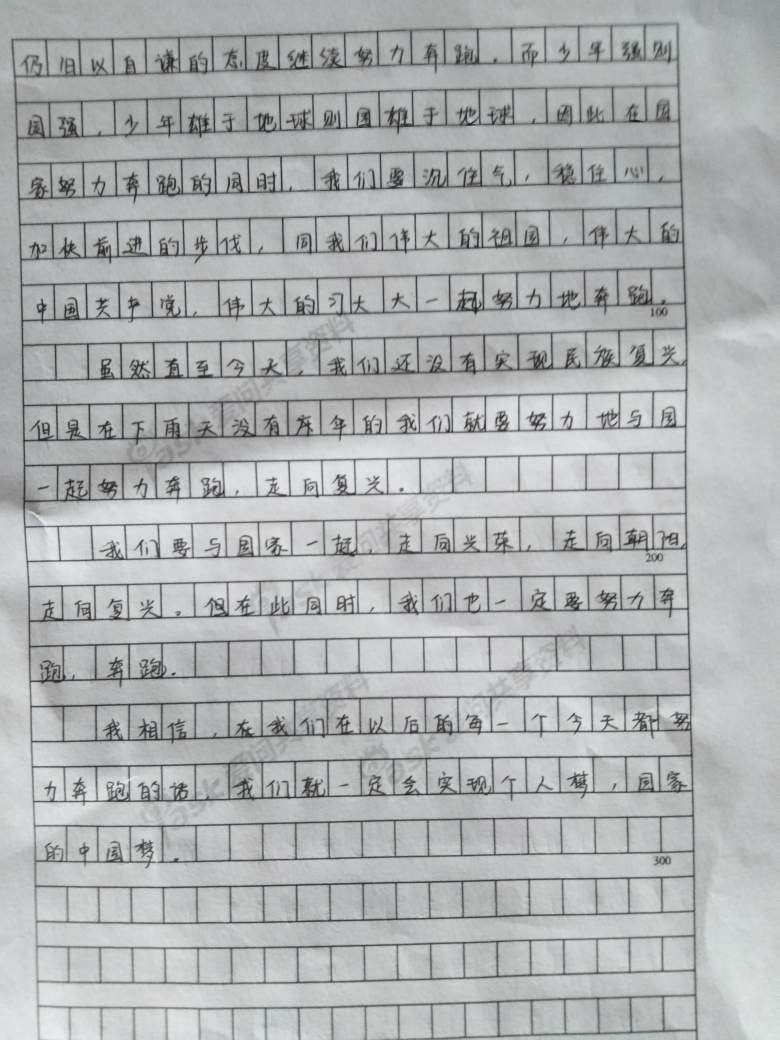 仍旧以自谦的态度继续努力奔跑。而少年强则
国强，少年雄于地球则国雄于地球，因此在国
家努力奔跑的同时，我们要沉住气，稳住心，
加快前进的步伐，同我们伟大的祖国，伟大的
中国共产党，伟大的习大大一起努力地奔跑。
100
虽然直至今天，我们还没有实现民族复兴，
但是在下雨天没有伞的我们就要努力地与国
一起努力奔跑，走向复兴。
我们要与国家一起，走向兴荣，走向朝阳，
200
走向复兴。但在此同时，我们也一定要努力奔
跑，奔跑。
我相信，在我们在以后的每一个今天都努
力奔跑的话，我们就一定会实现个人梦，国家
的中国梦。
300
ask爱问共享资料
ask爱问共享资料
ask爱问共享资料
ask爱问共享资料